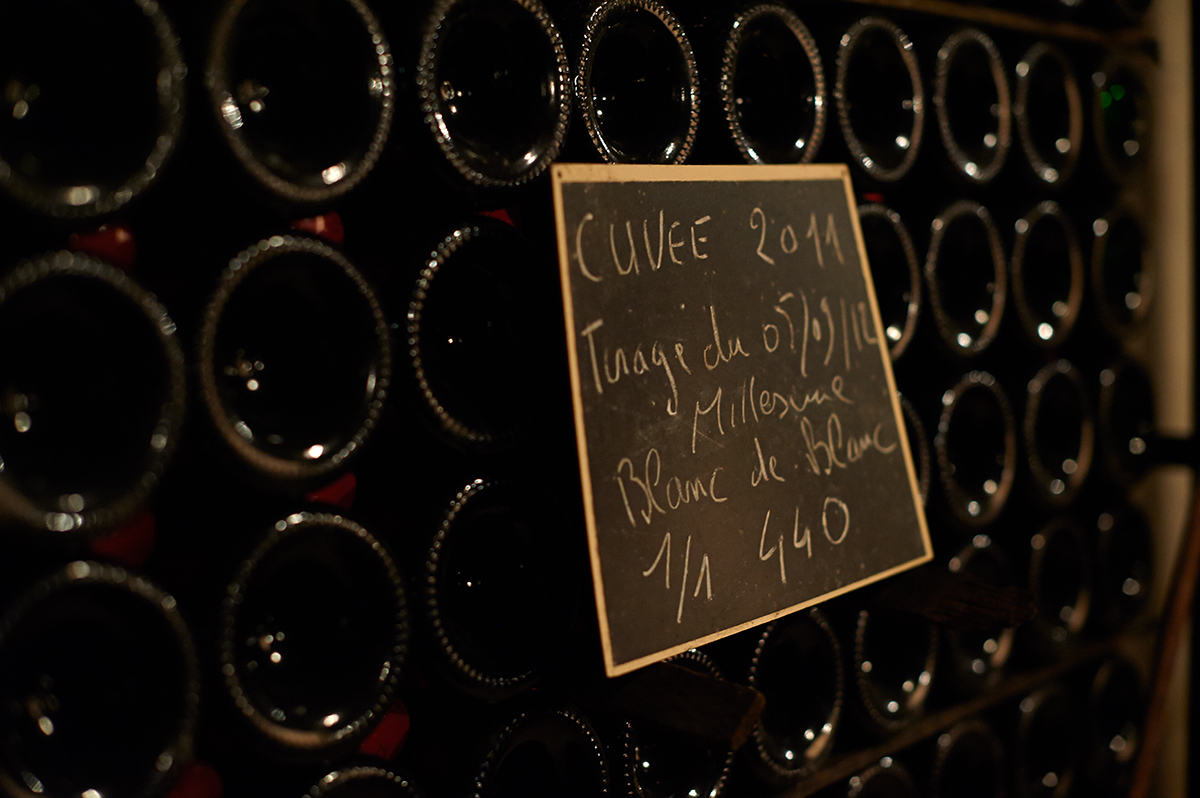 CUVEE 2011
Tirage du 05/09/12
Millesime
Blanc de Blanc
1/1 440